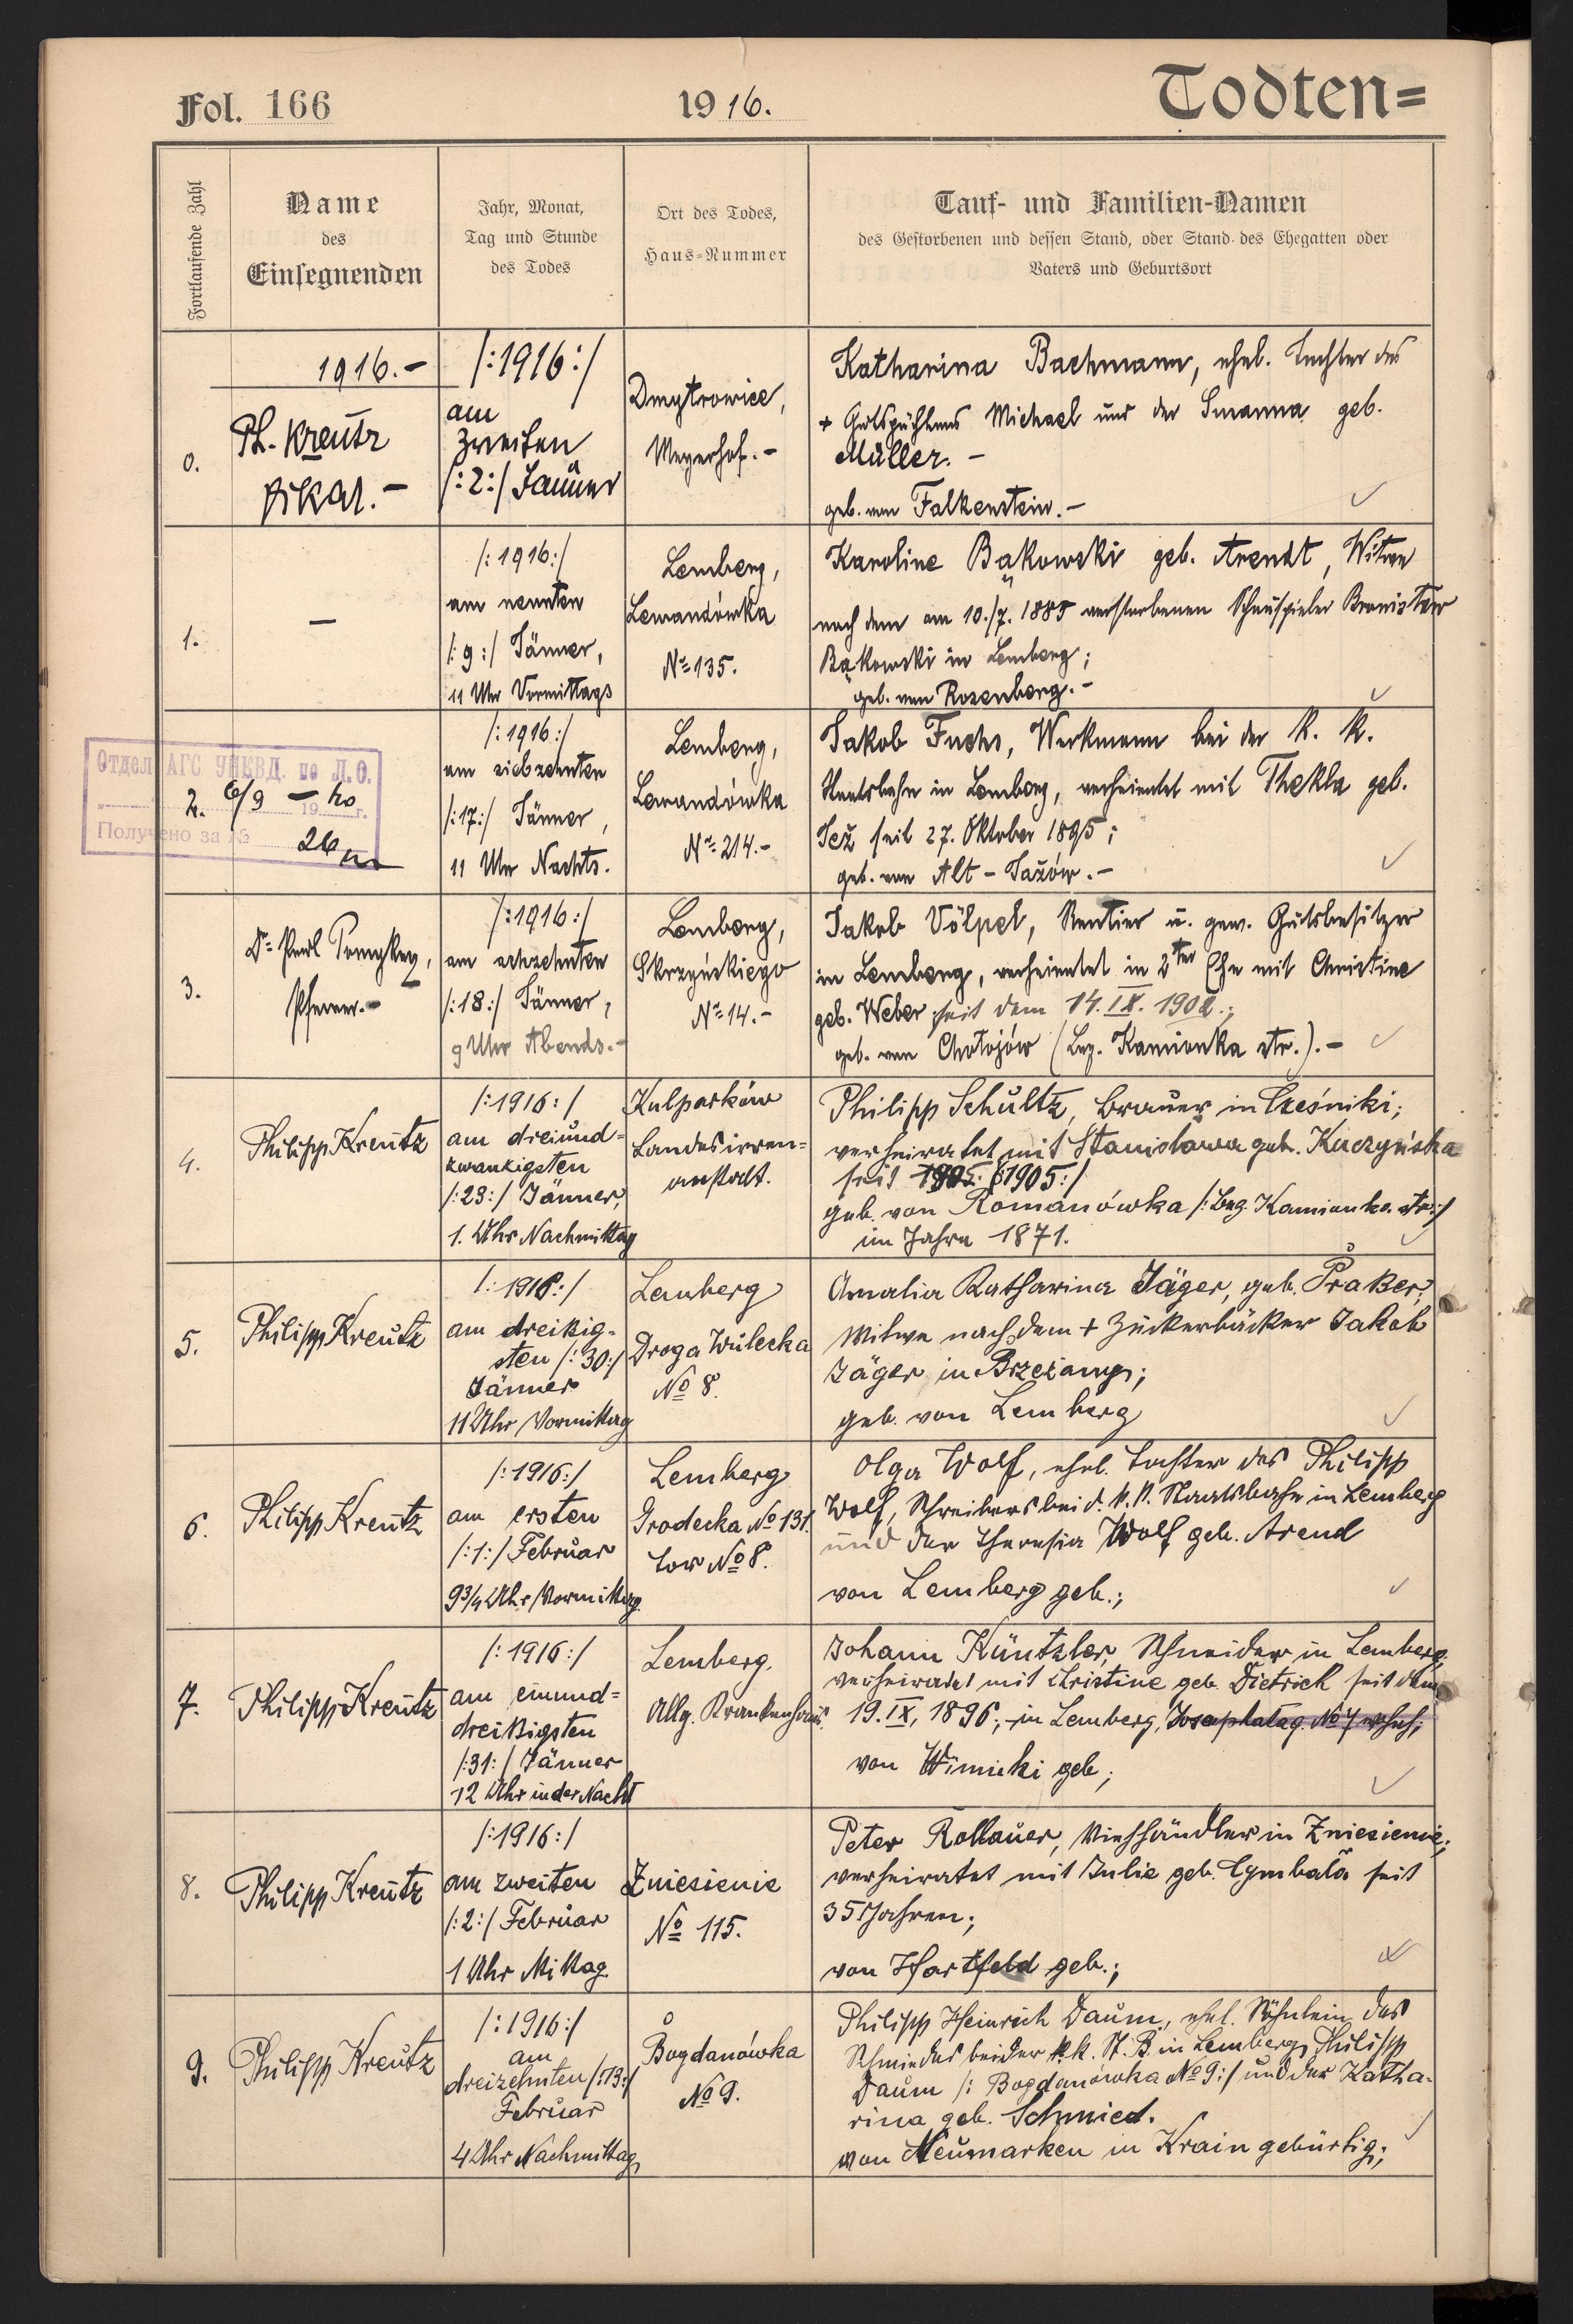 Fol. 166
1916.
Todten=
Fortlaufende Zahl
Name
des
Einsegnenden
Jahr, Monat,
Tag und Stunde
des Todes
Ort des Todes,
Haus-Nummer
Tauf- und Familien-Namen
des Gestorbenen und dessen Stand, oder Stand des Ehegatten oder
Vaters und Geburtsort
0.
1916.-
Ph. Kreutz
Vikar.-
/:1916:/
am
zweiten
/:2:/ Jänner
Dmytrowice,
Meyerhof.-
Katharina Bachmann, ehel. Tochter des
+ Gutspächters Michael und der Susanna geb.
Müller.-
geb. von Falkenstein.-
1.
—
/:1916:/
am neunten
/:9:/ Jänner,
11 Uhr Vormittags
Lemberg,
Lewandówka
No 135.
Karoline Bąkowski geb. Arendt, Witwe
nach dem am 10./7. 1885 verstorbenen Schauspieler Bronisław
Bąkowski in Lemberg;
geb. von Rosenberg.-
Отдел АГС УНКВД по Л.О.
2.
6/9 — 40
19 г.
Получено за №
/:1916:/
am siebzehnten
/:17:/ Jänner,
11 Uhr Nachts.
Lemberg,
Lewandówka
No 214.-
Jakob Fuchs, Werkmann bei der K. K.
Staatsbahn in Lemberg, verheiratet mit Thekla geb.
Jeż seit 27. Oktober 1895;
geb. von Alt-Jażów.-
3.
Dr. Paul
Pfarrer.-
/:1916:/
am achzehnten
/:18:/ Jänner,
9 Uhr Abends.-
Lemberg,
Skrzyńskiego
No 14.-
Jakob Völpel, Rentier u. gew. Gutsbesitzer
in Lemberg, verheiratet in 2ter Ehe mit Christine
geb. Weber seit dem 14. IX. 1902.;
geb. von Chołojów (Bez. Kamionka str.).-
4.
Philipp Kreutz
/:1916:/
am dreiund=
zwanzigsten
/:23:/ Jänner,
1. Uhr Nachmittag
Kulparków
Landesirren=
anstalt.
Philipp Schultz, Brauer in Cześniki;
verheiratet mit Stanisława geb. Kuczyńska
seit /:1905:/
geb. von Romanówka /:Bez. Kamionka str:/
im Jahre 1871.
5.
Philipp Kreutz
/:1916:/
am dreißig-
sten /:30:/
Jänner
11 Uhr Vormittag
Lemberg
Droga Wulecka
No 8.
Amalia Katharina Jäger, geb. Praßer,
Witwe nach dem + Zuckerbäcker Jakob
Jäger in Brzeżany;
geb. von Lemberg
6.
Philipp Kreutz
/:1916:/
am ersten
/:1:/ Februar
9 3/4 Uhr Vormittag
Lemberg
Grodecka No 131.
Tor No 8.
Olga Wolf, ehel. Tochter des Philipp
Wolf, Schreibers bei d. K. K. Staatsbahn in Lemberg
und der Theresia Wolf geb. Arend
von Lemberg geb.;
7.
Philipp Kreutz
/:1916:/
am einund=
dreißigsten
/:31:/ Jänner
12 Uhr in der Nacht
Lemberg.
Allg. Krankenhaus.
Johann Küntzler, Schneider in Lemberg,
verheiratet mit Christine geb. Dietrich seit dem
19. IX. 1896; in Lemberg, Josephatag. No 4 wohnh;
von Winniki geb;
8.
Philipp Kreutz
/:1916:/
am zweiten
/:2:/ Februar
1 Uhr Mittag.
Zniesienie
No 115.
Peter Rollauer, Viehhändler in Zniesienie;
verheiratet mit Julie geb. Cymbała seit
35 Jahren;
von Hartfeld geb.;
9.
Philipp Kreutz
/:1916:/
am
dreizehnten /:13:/
Februar
4 Uhr Nachmittag
Bogdanówka
No 9.
Philipp Heinrich Daum, ehel. Söhnlein des
Schmiedes bei der k.k. St. B. in Lemberg, Philipp
Daum /: Bogdanówka No 9:/ und der Katha-
rina geb. Schmied.
von Neumarken in Krain gebürtig;